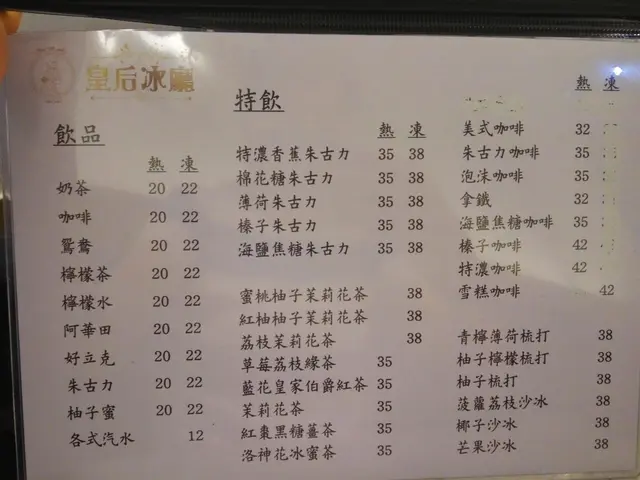 皇后冰廳
飲品
熱 凍
奶茶 20 22
咖啡 20 22
鴛鴦 20 22
檸檬茶 20 22
檸檬水 20 22
阿華田 20 22
好立克 20 22
朱古力 20 22
柚子蜜 20 22
各式汽水 12
特飲
熱 凍
特濃香蕉朱古力 35 38
棉花糖朱古力 35 38
薄荷朱古力 35 38
榛子朱古力 35 38
海鹽焦糖朱古力 35 38
蜜桃柚子茉莉花茶 38
紅柚柚子茉莉花茶 38
荔枝茉莉花茶 38
草莓荔枝綠茶 35
藍花皇家伯爵紅茶 35
茉莉花茶 35
紅棗黑糖薑茶 35
洛神花冰蜜茶 35
熱 凍
美式咖啡 32
朱古力咖啡 35
泡沫咖啡 35
拿鐵 32
海鹽焦糖咖啡 35
榛子咖啡 42
特濃咖啡 42
雪糕咖啡 42
青檸薄荷梳打 38
柚子檸檬梳打 38
柚子梳打 38
菠蘿荔枝沙冰 38
椰子沙冰 38
芒果沙冰 38